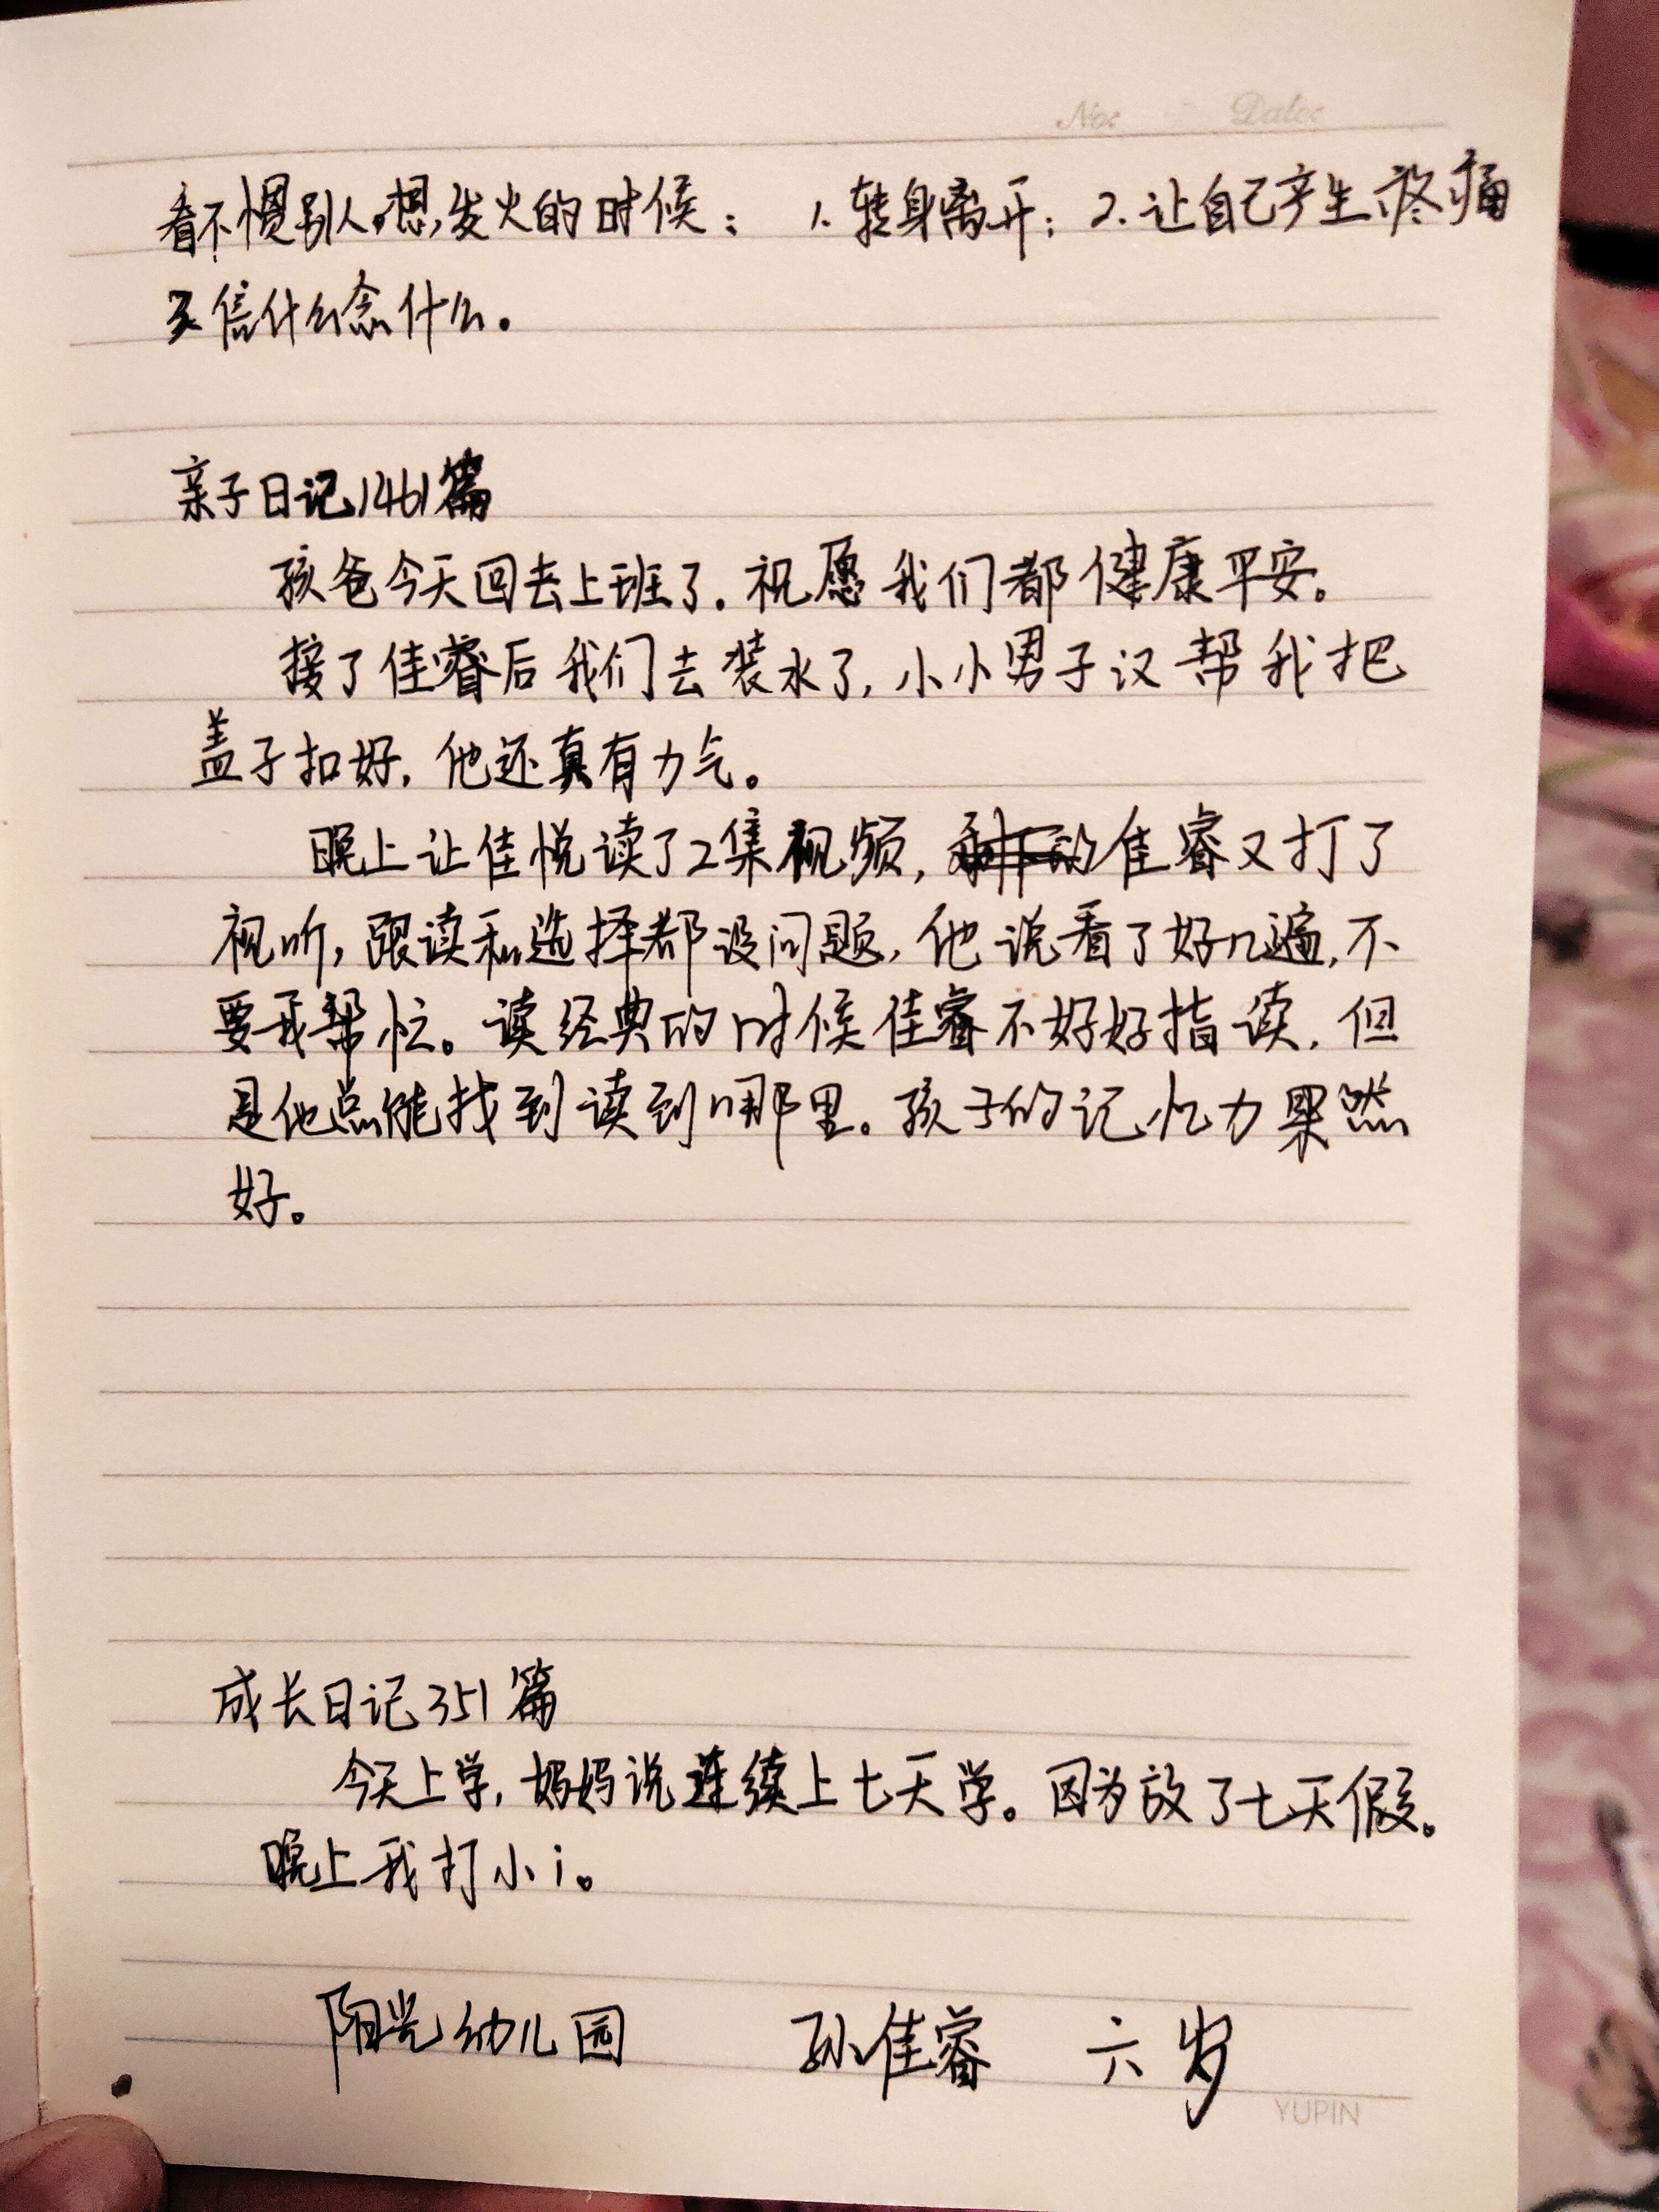 No: Date:
看不惯别人,想发火的时候： 1.转身离开；2.让自己产生疼痛
3.信什么念什么。
亲子日记1461篇
孩爸今天回去上班了.祝愿我们都健康平安。
接了佳睿后我们去装水了,小小男子汉帮我把
盖子扣好,他还真有力气。
晚上让佳悦读了2集视频,佳睿又打了
视听,跟读和选择都没问题,他说看了好几遍,不
要我帮忙。读经典的时候佳睿不好好指读,但
是他总能找到读到哪里。孩子的记忆力果然
好。
成长日记351篇
今天上学,妈妈说连续上七天学。因为放了七天假。
晚上我打小i。
阳光幼儿园 孙佳睿 六岁
YUPIN